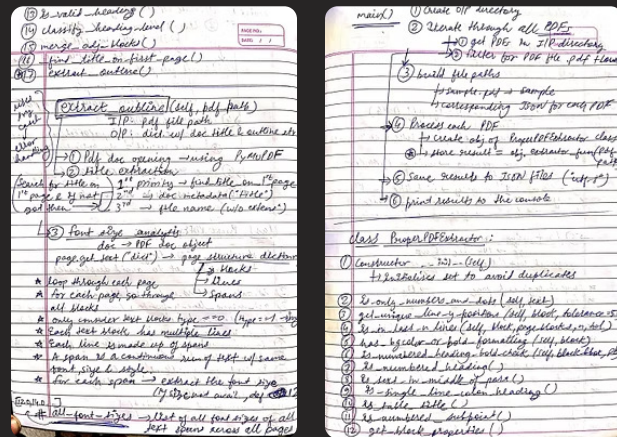 ⑬ is_valid_heading()
⑭ classify_heading_level()
⑮ merge_adj_blocks()
⑯ find_title_on_first_page()
⑰ extract_outline()
PAGE NO.:
DATE: / /
extract_outline (self, pdf path)
I/P: pdf file path
O/P: dict w/ doc title & outline
error handling
→ ① Pdf doc opening → using PyMuPDF
→ ② title extraction
Search for title on 1st page & if not
1st priority → find title on 1st page
2nd → doc metadata ("title")
3rd → file name (w/o extens")
③ font size analysis
doc → PDF doc object
page.get_text ("dict") → page structure
→ blocks
→ lines
→ spans
* loop through each page
* for each page, go through
all blocks
* only consider text blocks type == 0.
* Each text block has multiple lines
* Each line is made up of spans
* A span is a continuous run of text w/ same
font, size & style.
* for each span → extract the font size
all_font_sizes → list of all font sizes of all
text spans across all pages
main() ① Create O/P directory
② Iterate through all PDFs:
→ ① get PDFs in I/P directory
→ ② filter for PDF file
③ build file paths
↳ sample.pdf → sample
↳ corresponding JSON for each PDF
④ Process each PDF
↳ create obj of ProperPDFExtractor class
↳ store result = obj.
⑤ Save results to JSON files
⑥ print results to the console
class ProperPDFExtractor:
① Constructor __init__(self)
↳ Initialises set to avoid duplicates
② is_only_numbers_and_dots (self, text)
③ get_unique_line_y_positions (self, block, tolerance=
④ is_in_last_n_lines (self, block, page_blocks, n, tol)
⑤ has_bgcolor_or_bold_formatting (self, block)
⑥ is_numbered_heading_bold_check (self,
⑦ is_numbered_heading()
⑧ is_text_in_middle_of_para()
⑨ is_single_line_colon_heading()
⑩ is_table_title()
⑪ is_numbered_subpoint()
⑫ get_block_properties()